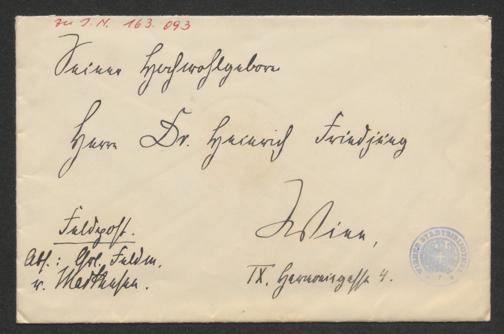 zu I.N. 163.093
Seiner Hochwohlgeboren
Herrn Dr. Heinrich Friedjung
Wien,
IX. Hermengasse 4.
Feldpost.
Abs.: Gfl. Feldm.
v. Mackensen.
WIENER STADTBIBLIOTHEK